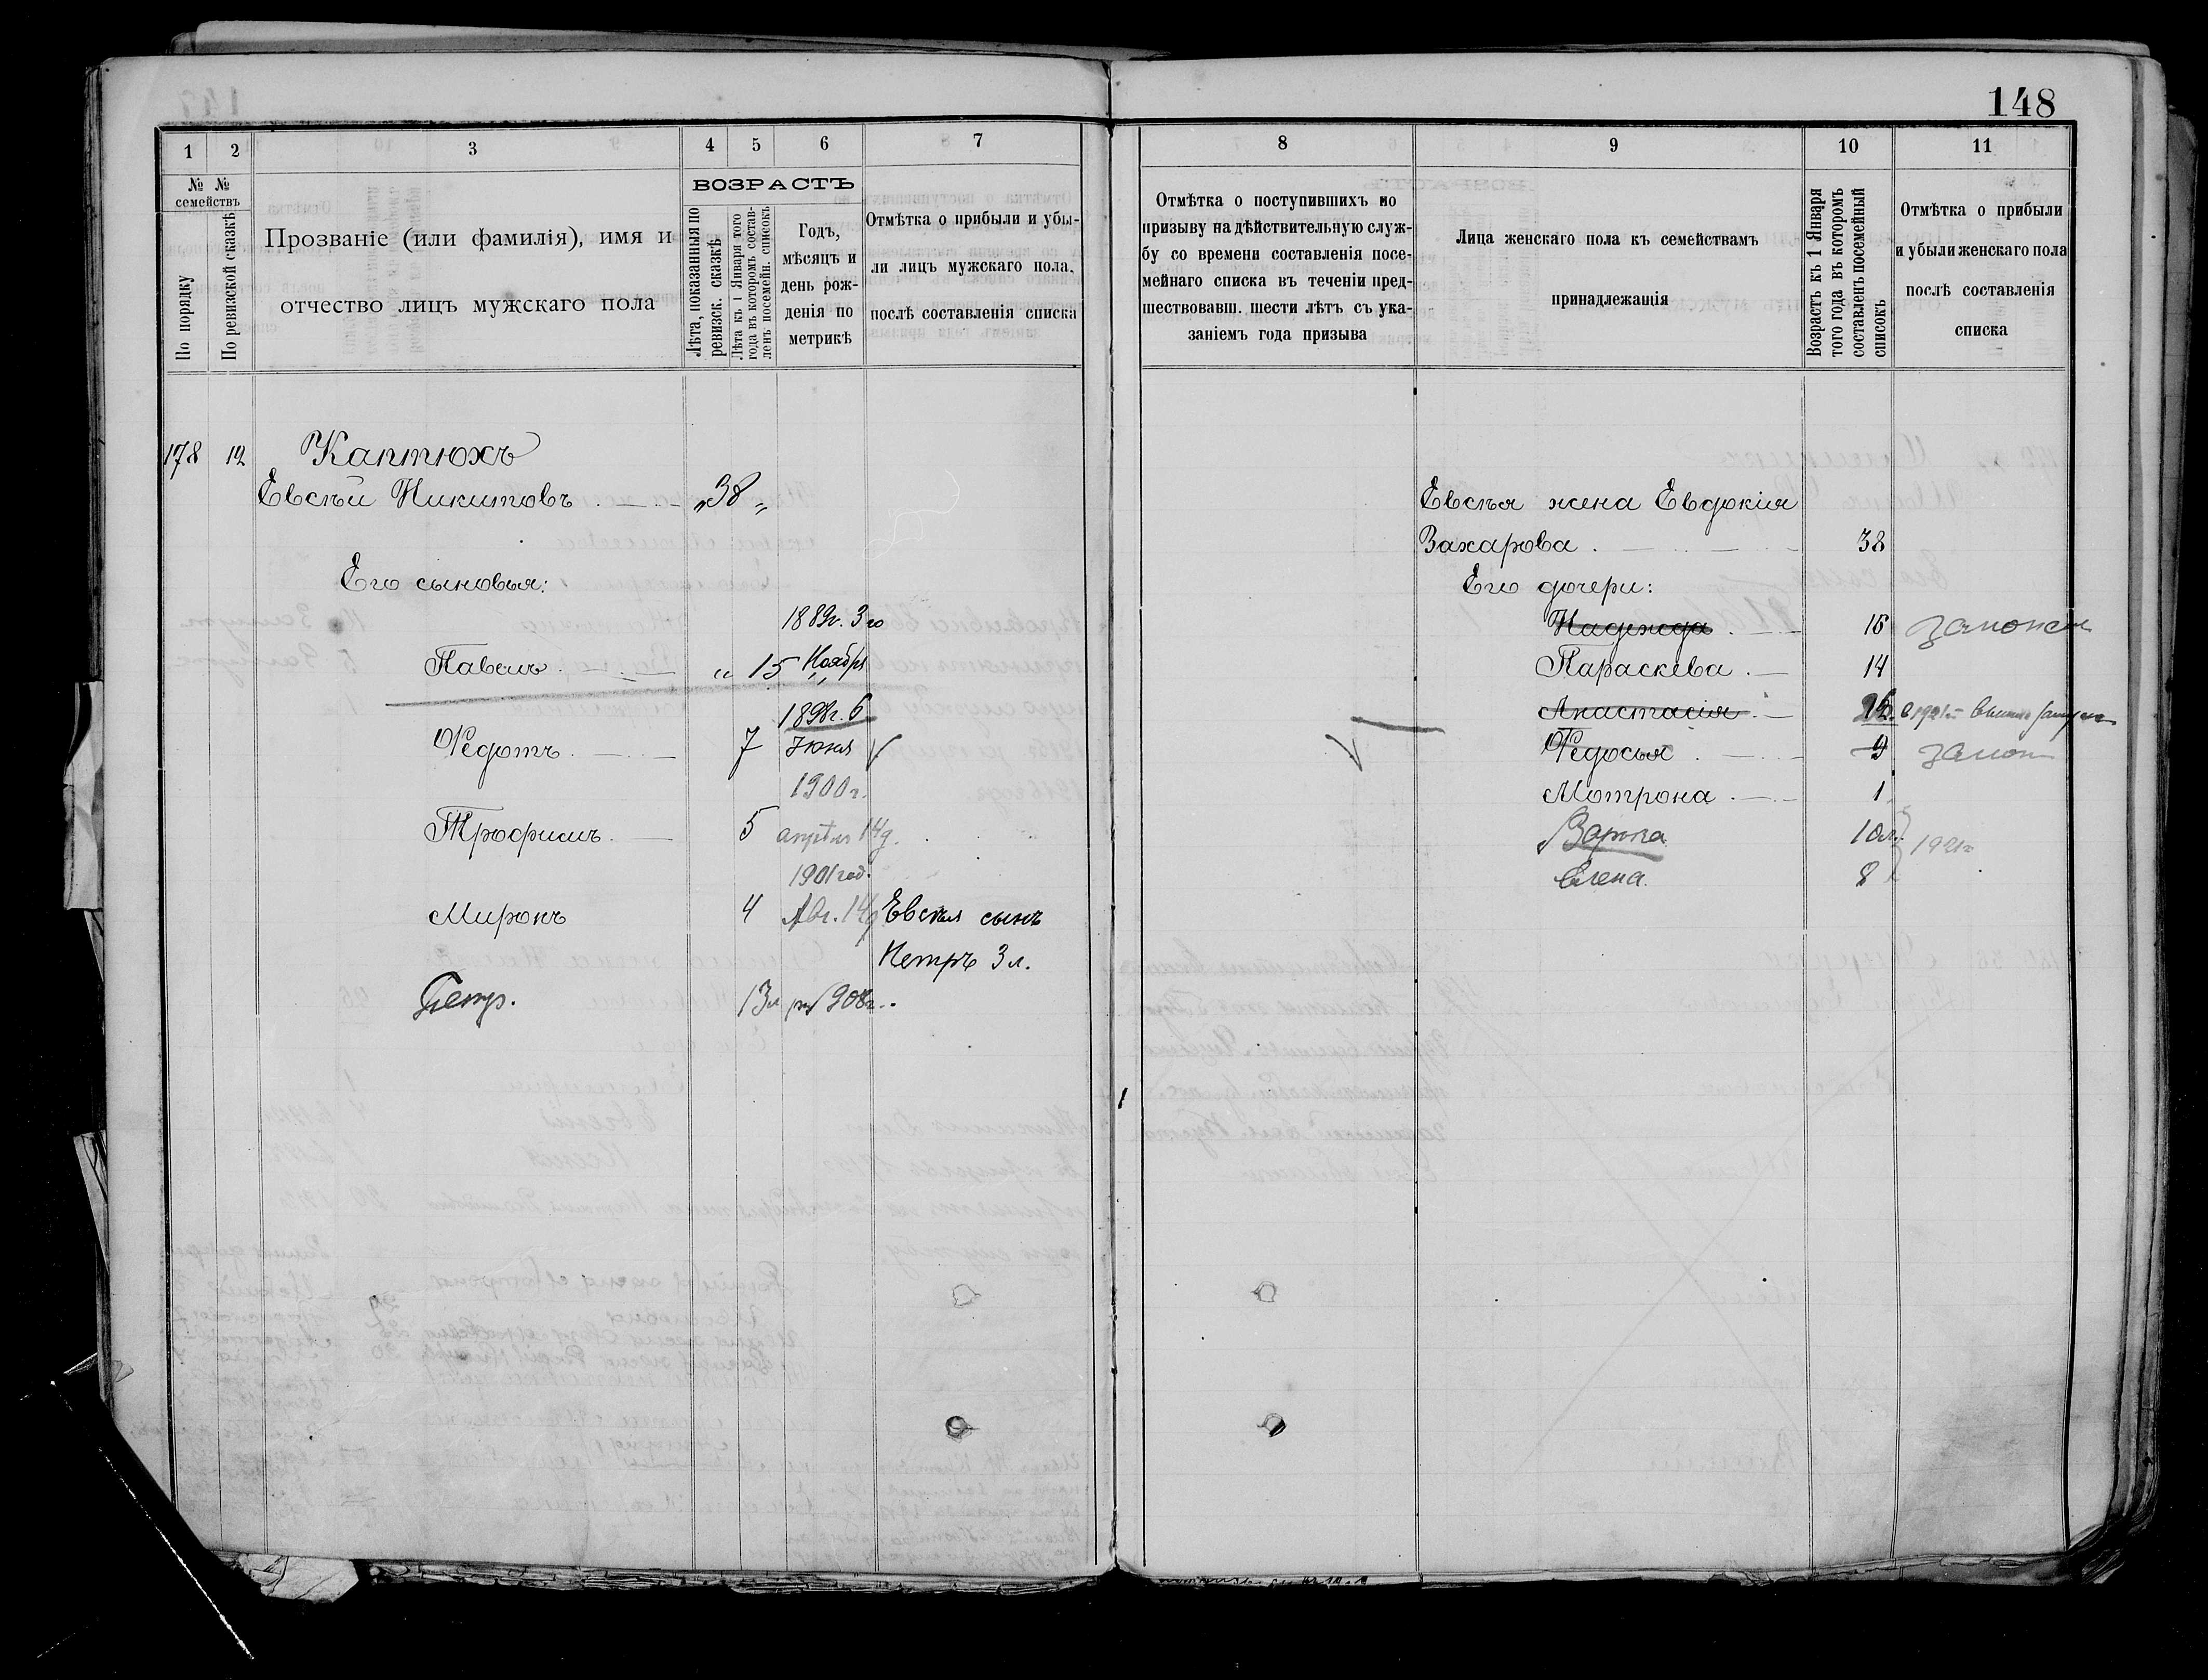 148
1
2
3
4
5
6
7
№ № семействъ
По порядку
По ревизской сказкѣ
Прозваніе (или фамилія), имя и
отчество лицъ мужскаго пола
ВОЗРАСТЪ
Лѣта, показанныя по
ревизск. сказкѣ
Лѣта къ 1 Января того
года въ которомъ состав-
ленъ посемейн. списокъ
Годъ,
мѣсяцъ и
день рож-
денія по
метрикѣ
Отмѣтка о прибыли и убы-
ли лицъ мужскаго пола,
послѣ составленія списка
178 12 Каптюхъ
Евсѣй Никитовъ „38„
Его сыновья:
1889г. 3го
Павелъ „ 15 Ноября
1898г. 6
Ѳедотъ 7 Іюня
1900г.
Трофимъ 5 апрѣля 14д.
1901год.
Миронъ 4 Авг. 14д Евсѣя сынъ
Петръ 3 л.
Петр. 13л 908г.
8
9
10
11
Отмѣтка о поступившихъ по
призыву на дѣйствительную служ-
бу со времени составленія посе-
мейнаго списка въ теченіи пред-
шествовавш. шести лѣтъ съ ука-
заніемъ года призыва
Лица женскаго пола къ семействамъ
принадлежащія
Возрастъ къ 1 Января
того года въ которомъ
составленъ посемейный
списокъ
Отмѣтка о прибыли
и убыли женскаго пола
послѣ составленія
списка
Евсѣя жена Евдокія
Захарова 38
Его дочери:
Надежда 16 замужем
Параскева 14
Анастасія 12
Ѳедосья 9 замуж
Мотрона 1
Варка 10л. 1921г
Елена 8